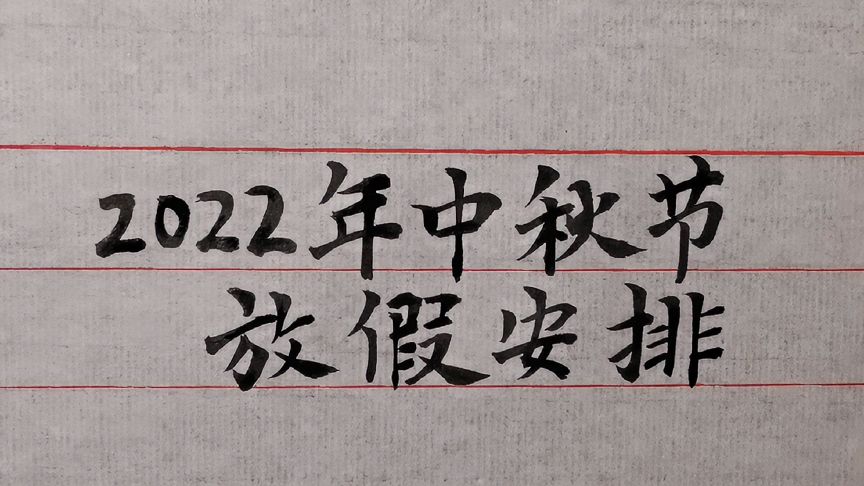 2022年中秋节
放假安排